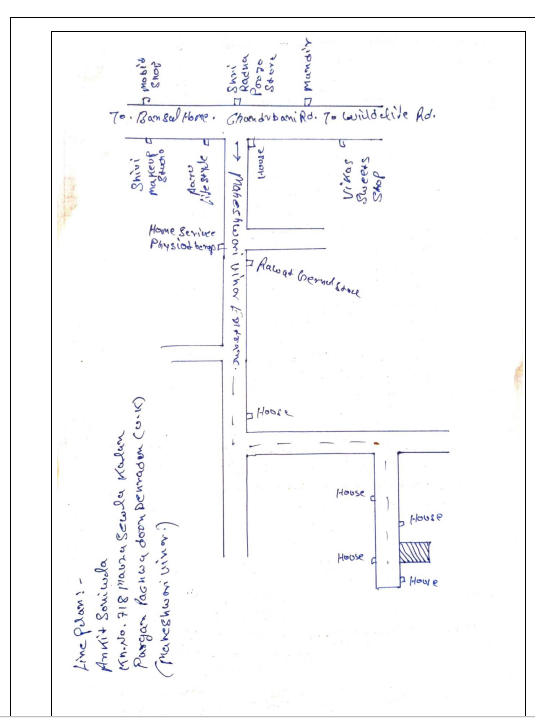 Mobil
Shop
Shri
Radha
Pooja
Store
Mandir
To. Bansal Home. Chandrbani Rd. To Wildelife Rd.
Shivi
Makeup
Studio
Aaru
Lifestyle
House
Vikas
Sweets
Shop
Home Service
Physiotherap
Maheshwari Vihar
Rawat Genrul Store
House
House
House
House
House
Line Plan:-
Ankit Soniwala
Kh.No. 718 Mauza Sewla Kalan
Pargan Pachwa doon Dehradon (U.K)
(Maheshwari Vihar.)